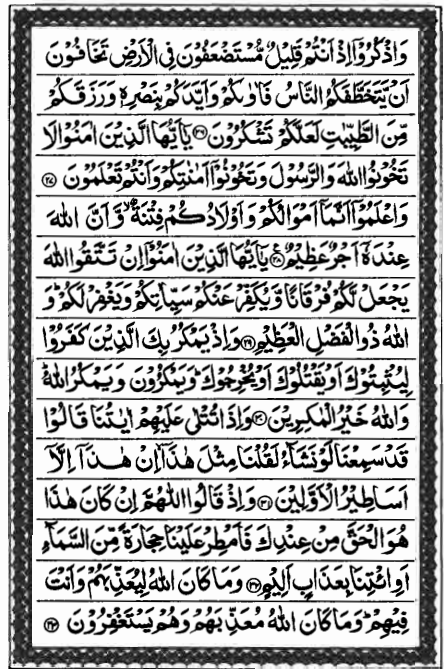 وَاذْكُرُوْۤا اِذْ اَنْتُمْ قَلِيْلٌ مُّسْتَضْعَفُوْنَ فِی الْاَرْضِ تَخَافُوْنَ
اَنْ يَّتَخَطَّفَكُمُ النَّاسُ فَاٰوٰىكُمْ وَاَيَّدَكُمْ بِنَصْرِهٖ وَرَزَقَكُمْ
مِّنَ الطَّيِّبٰتِ لَعَلَّكُمْ تَشْكُرُوْنَ ﴿۲۶﴾ يٰۤاَيُّهَا الَّذِيْنَ اٰمَنُوْا لَا
تَخُوْنُوا اللّٰهَ وَالرَّسُوْلَ وَتَخُوْنُوْۤا اَمٰنٰتِكُمْ وَاَنْتُمْ تَعْلَمُوْنَ ﴿۲۷﴾
وَاعْلَمُوْۤا اَنَّمَاۤ اَمْوَالُكُمْ وَاَوْلَادُكُمْ فِتْنَةٌ ۙ وَّاَنَّ اللّٰهَ
عِنْدَهٗۤ اَجْرٌ عَظِيْمٌ ﴿۲۸﴾ يٰۤاَيُّهَا الَّذِيْنَ اٰمَنُوْۤا اِنْ تَتَّقُوا اللّٰهَ
يَجْعَلْ لَّكُمْ فُرْقَانًا وَّيُكَفِّرْ عَنْكُمْ سَيِّاٰتِكُمْ وَيَغْفِرْ لَكُمْ ؕ وَ
اللّٰهُ ذُو الْفَضْلِ الْعَظِيْمِ ﴿۲۹﴾ وَاِذْ يَمْكُرُ بِكَ الَّذِيْنَ كَفَرُوْا
لِيُثْبِتُوْكَ اَوْ يَقْتُلُوْكَ اَوْ يُخْرِجُوْكَ ؕ وَيَمْكُرُوْنَ وَيَمْكُرُ اللّٰهُ ؕ
وَاللّٰهُ خَيْرُ الْمٰكِرِيْنَ ﴿۳۰﴾ وَاِذَا تُتْلٰی عَلَيْهِمْ اٰيٰتُنَا قَالُوْا
قَدْ سَمِعْنَا لَوْ نَشَآءُ لَقُلْنَا مِثْلَ هٰذَاۤ ۙ اِنْ هٰذَاۤ اِلَّاۤ
اَسَاطِيْرُ الْاَوَّلِيْنَ ﴿۳۱﴾ وَاِذْ قَالُوا اللّٰهُمَّ اِنْ كَانَ هٰذَا
هُوَ الْحَقَّ مِنْ عِنْدِكَ فَاَمْطِرْ عَلَيْنَا حِجَارَةً مِّنَ السَّمَآءِ
اَوِ ائْتِنَا بِعَذَابٍ اَلِيْمٍ ﴿۳۲﴾ وَمَا كَانَ اللّٰهُ لِيُعَذِّبَهُمْ وَاَنْتَ
فِيْهِمْ ؕ وَمَا كَانَ اللّٰهُ مُعَذِّبَهُمْ وَهُمْ يَسْتَغْفِرُوْنَ ﴿۳۳﴾